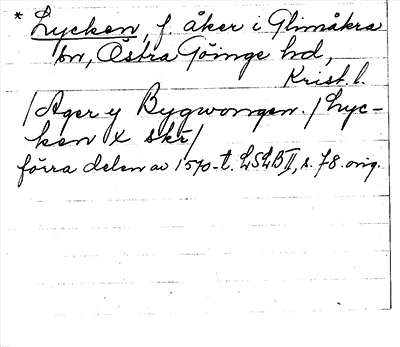 * Lycken, f. åker i Glimåkra
sn, Östra Göinge hd,
Krist. l.
/Ager y Bygwongen. / Lyc-
ken x skr/
förra delen av 1570-t. LSLB II, s. 78. orig.